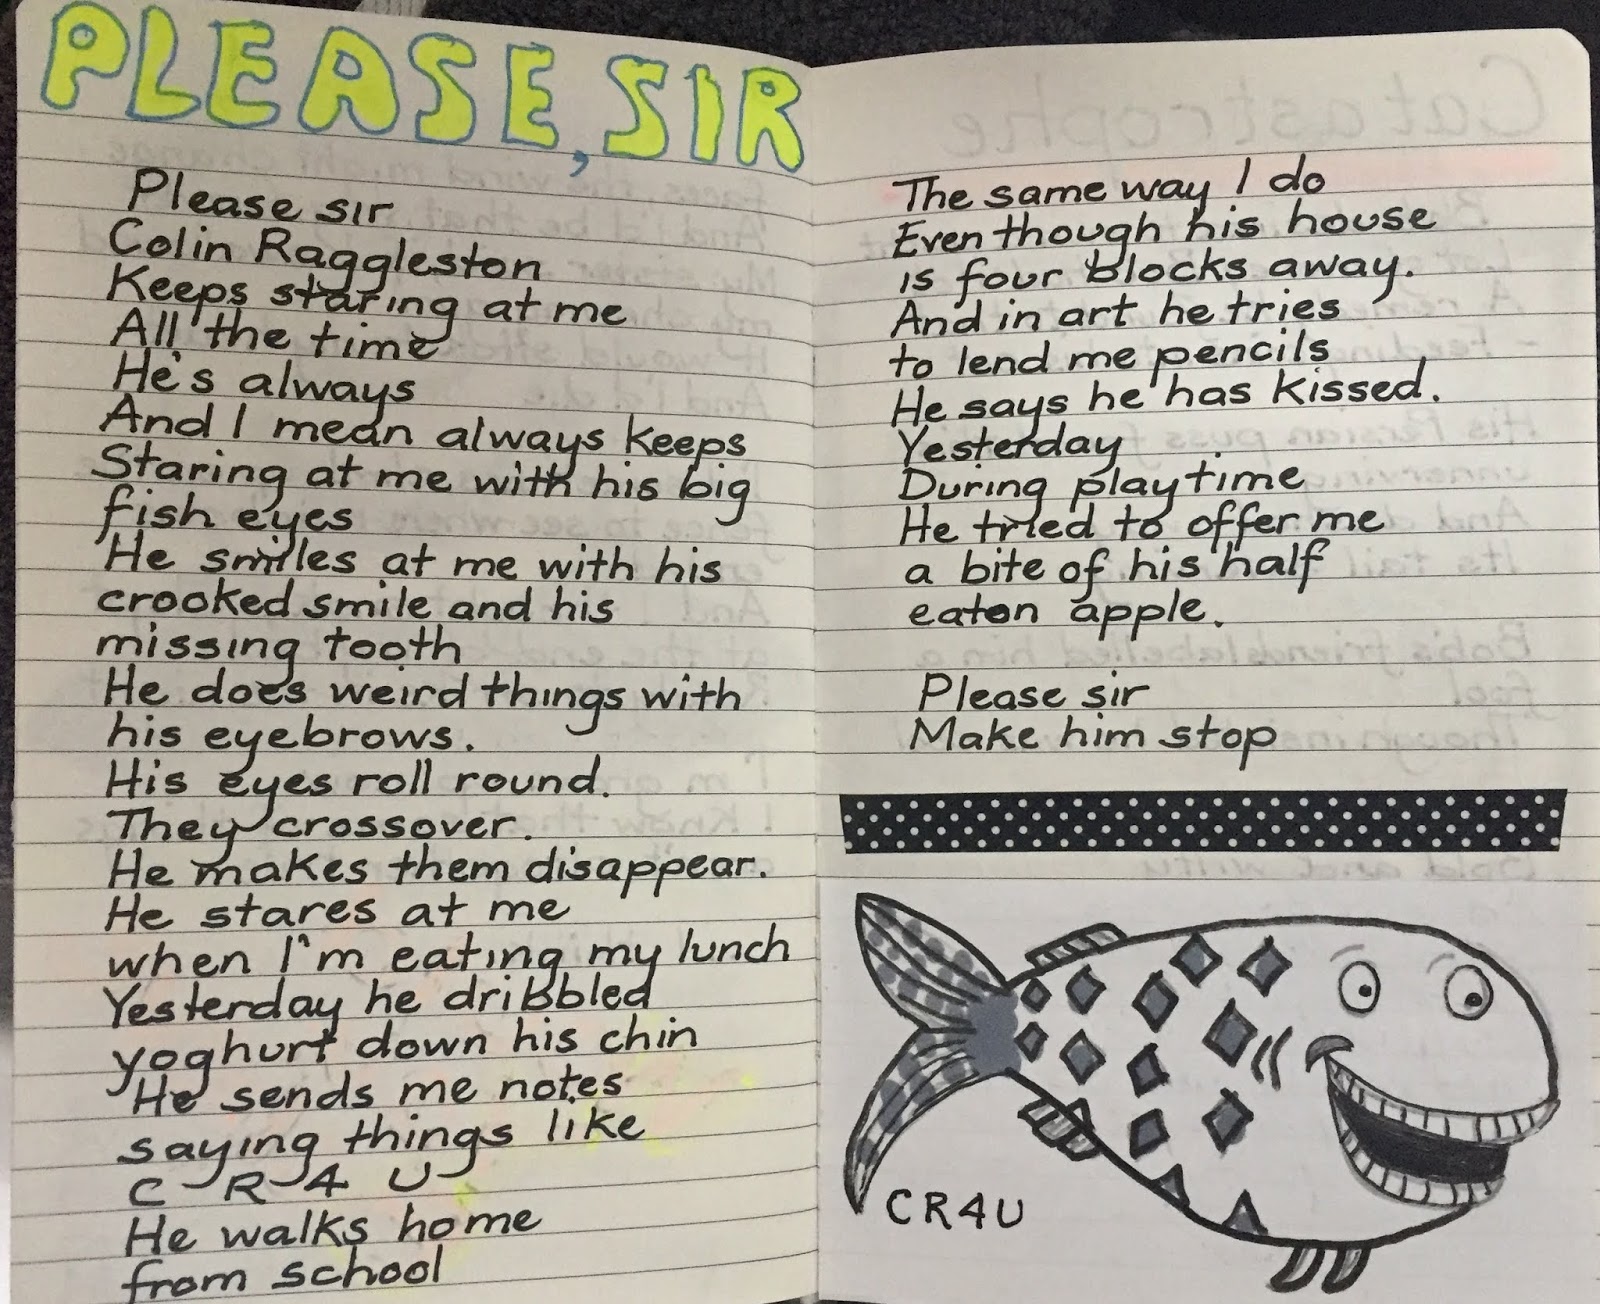 PLEASE, SIR
Please sir
Colin Raggleston
Keeps staring at me
All the time
He's always
And I mean always keeps
Staring at me with his big
fish eyes
He smiles at me with his
crooked smile and his
missing tooth
He does weird things with
his eyebrows.
His eyes roll round.
They crossover.
He makes them disappear.
He stares at me
when I'm eating my lunch
Yesterday he dribbled
yoghurt down his chin
He sends me notes
saying things like
C R 4 U
He walks home
from school
The same way I do
Even though his house
is four blocks away.
And in art he tries
to lend me pencils
He says he has kissed.
Yesterday
During playtime
He tried to offer me
a bite of his half
eaten apple.
Please sir
Make him stop
CR4U